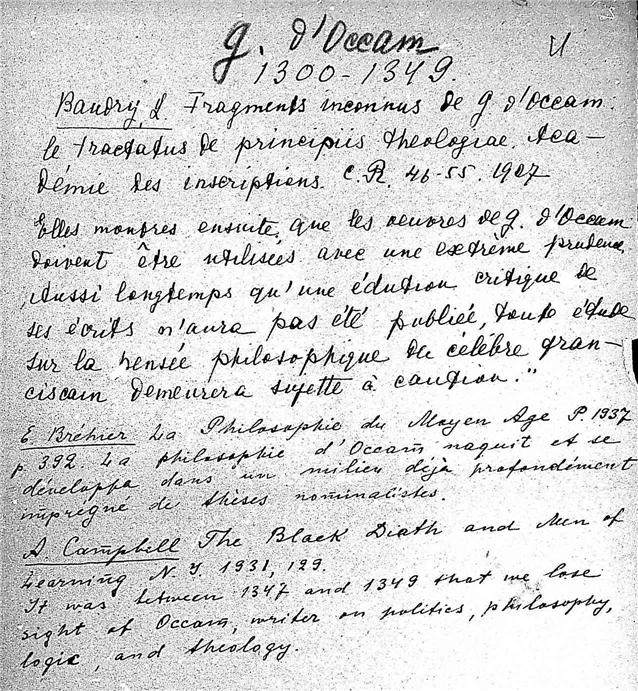 G. d'Occam
1300-1349.
Baudry, L Fragments inconnus de G d'Occam.
le Tractatus de principiis theologiae. Aca-
démie des inscriptions. C.R. 46-55. 1927
Elles montres ensuite, que les oeuvres de G. d'Occam
doivent être utilisées avec une extrême prudence.
Aussi longtemps qu'une édution critique de
ses écrits n'aura pas été publiée, toute étude
sur la pensée philosophique du célèbre fran-
ciscain demeurera sujette à caution."
E. Bréhier La Philosophie du Moyen Age P. 1937
p. 392. La philosophie d'Occam naquit et se
développa dans un milieu déjà profondément
imprégné de thèses nominalistes.
A. Campbell The Black Diath and Men of
Learning N. Y. 1931, 129.
It was between 1347 and 1349 that we lose
sight of Occam, writer on politics, philosophy,
logic, and theology.